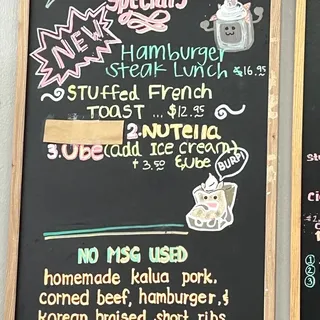 Specials
NEW
Hamburger
Steak Lunch $16.95
Stuffed French
TOAST ... $12.95
2. Nutella
3. Ube (add Ice cream)
+ 3.50 & Ube
BURP!
NO MSG USED
homemade kalua pork,
corned beef, hamburger, &
korean braised short ribs